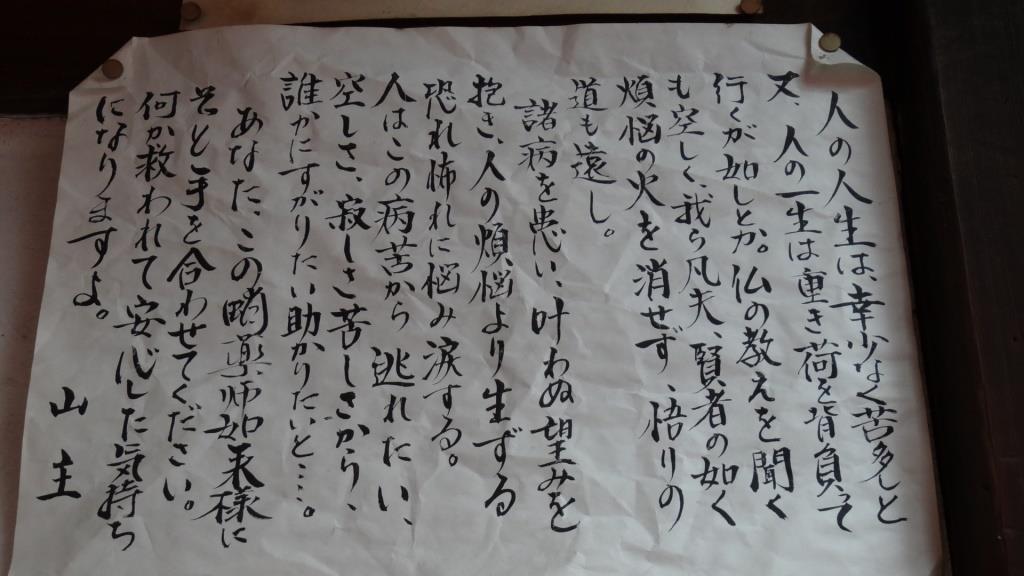 人の人生は、幸少なく苦多しと
又、人の一生は重き荷を背負て
行くが如しとか。仏の教えを聞く
も空しく、我ら凡夫、賢者の如く
煩悩の火を消せず、悟りの
道も遠し。
諸病を患い、叶わぬ望みを
抱き、人の煩悩より生ずる
恐れ怖れに悩み涙する。
人はこの病苦から逃れたい、
空しさ、寂しさ苦しさから、
誰かにすがりたい助かりたいと…。
あなた、この 薬師如来様に
そっと手を合わせてください。
何か救われて安心した気持ち
になりますよ。
山主